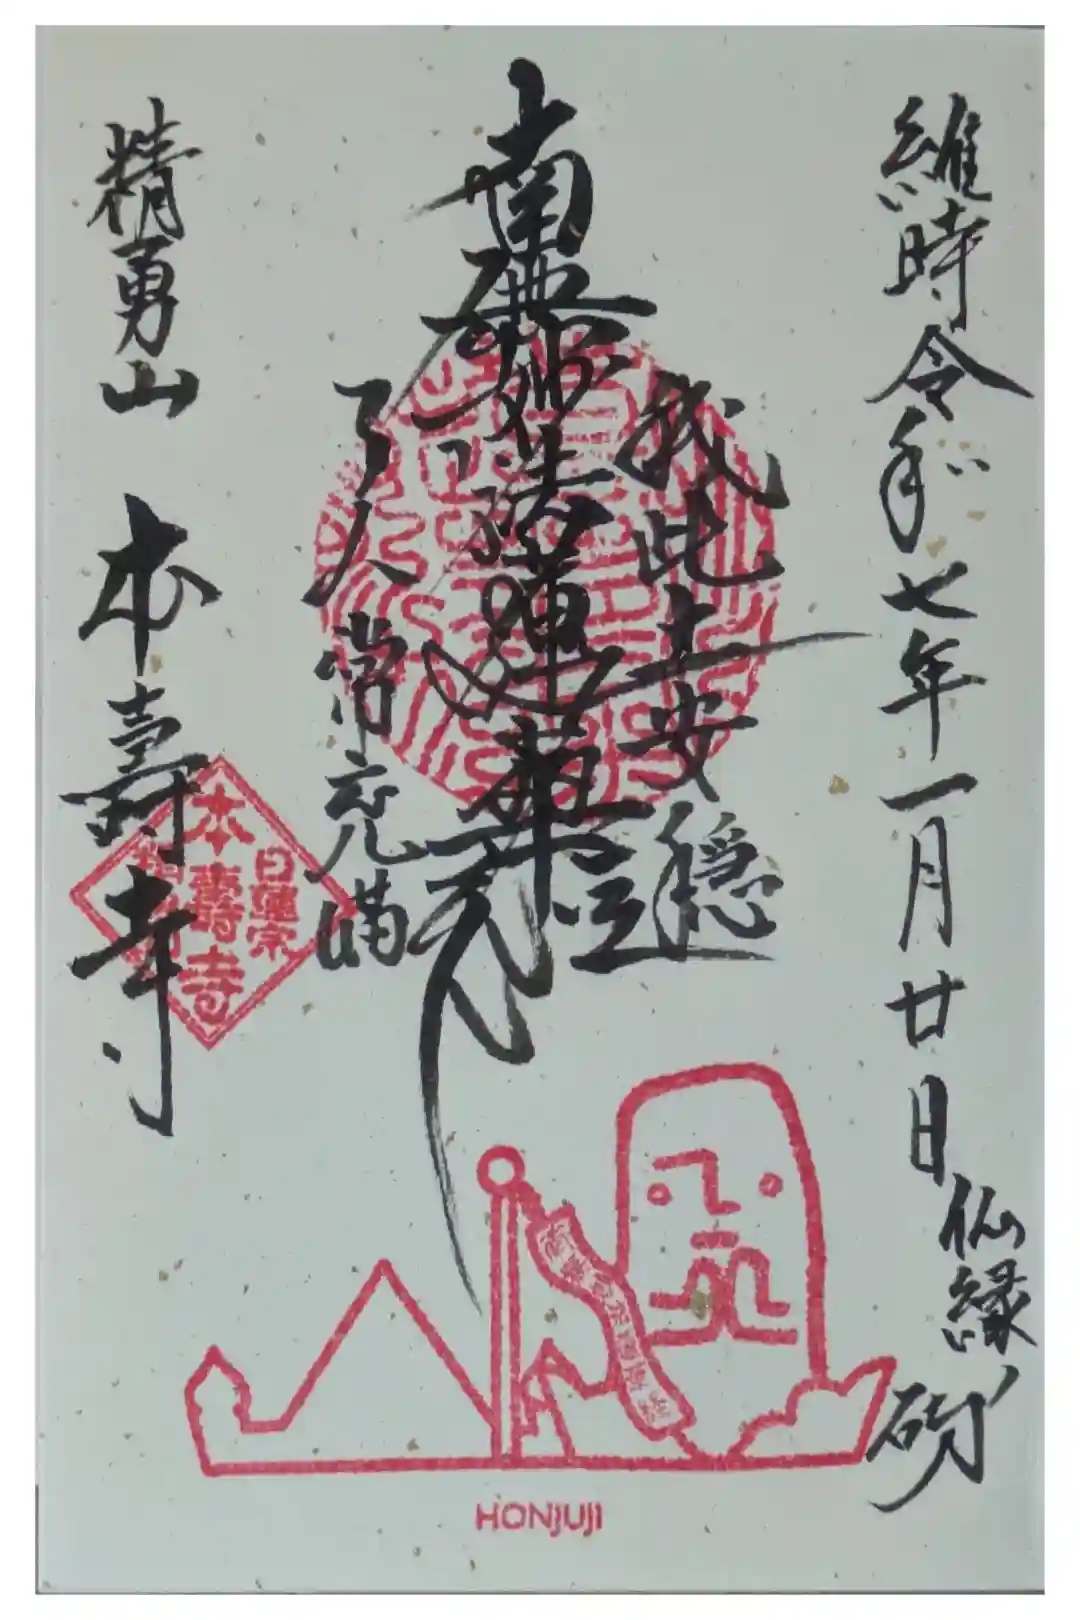 維時令和七年一月廿日
仏縁ノ砌
我此土安穏
南無妙法蓮華経
天人常充満
精勇山 本壽寺
日蓮宗
本壽寺
HONJUJI